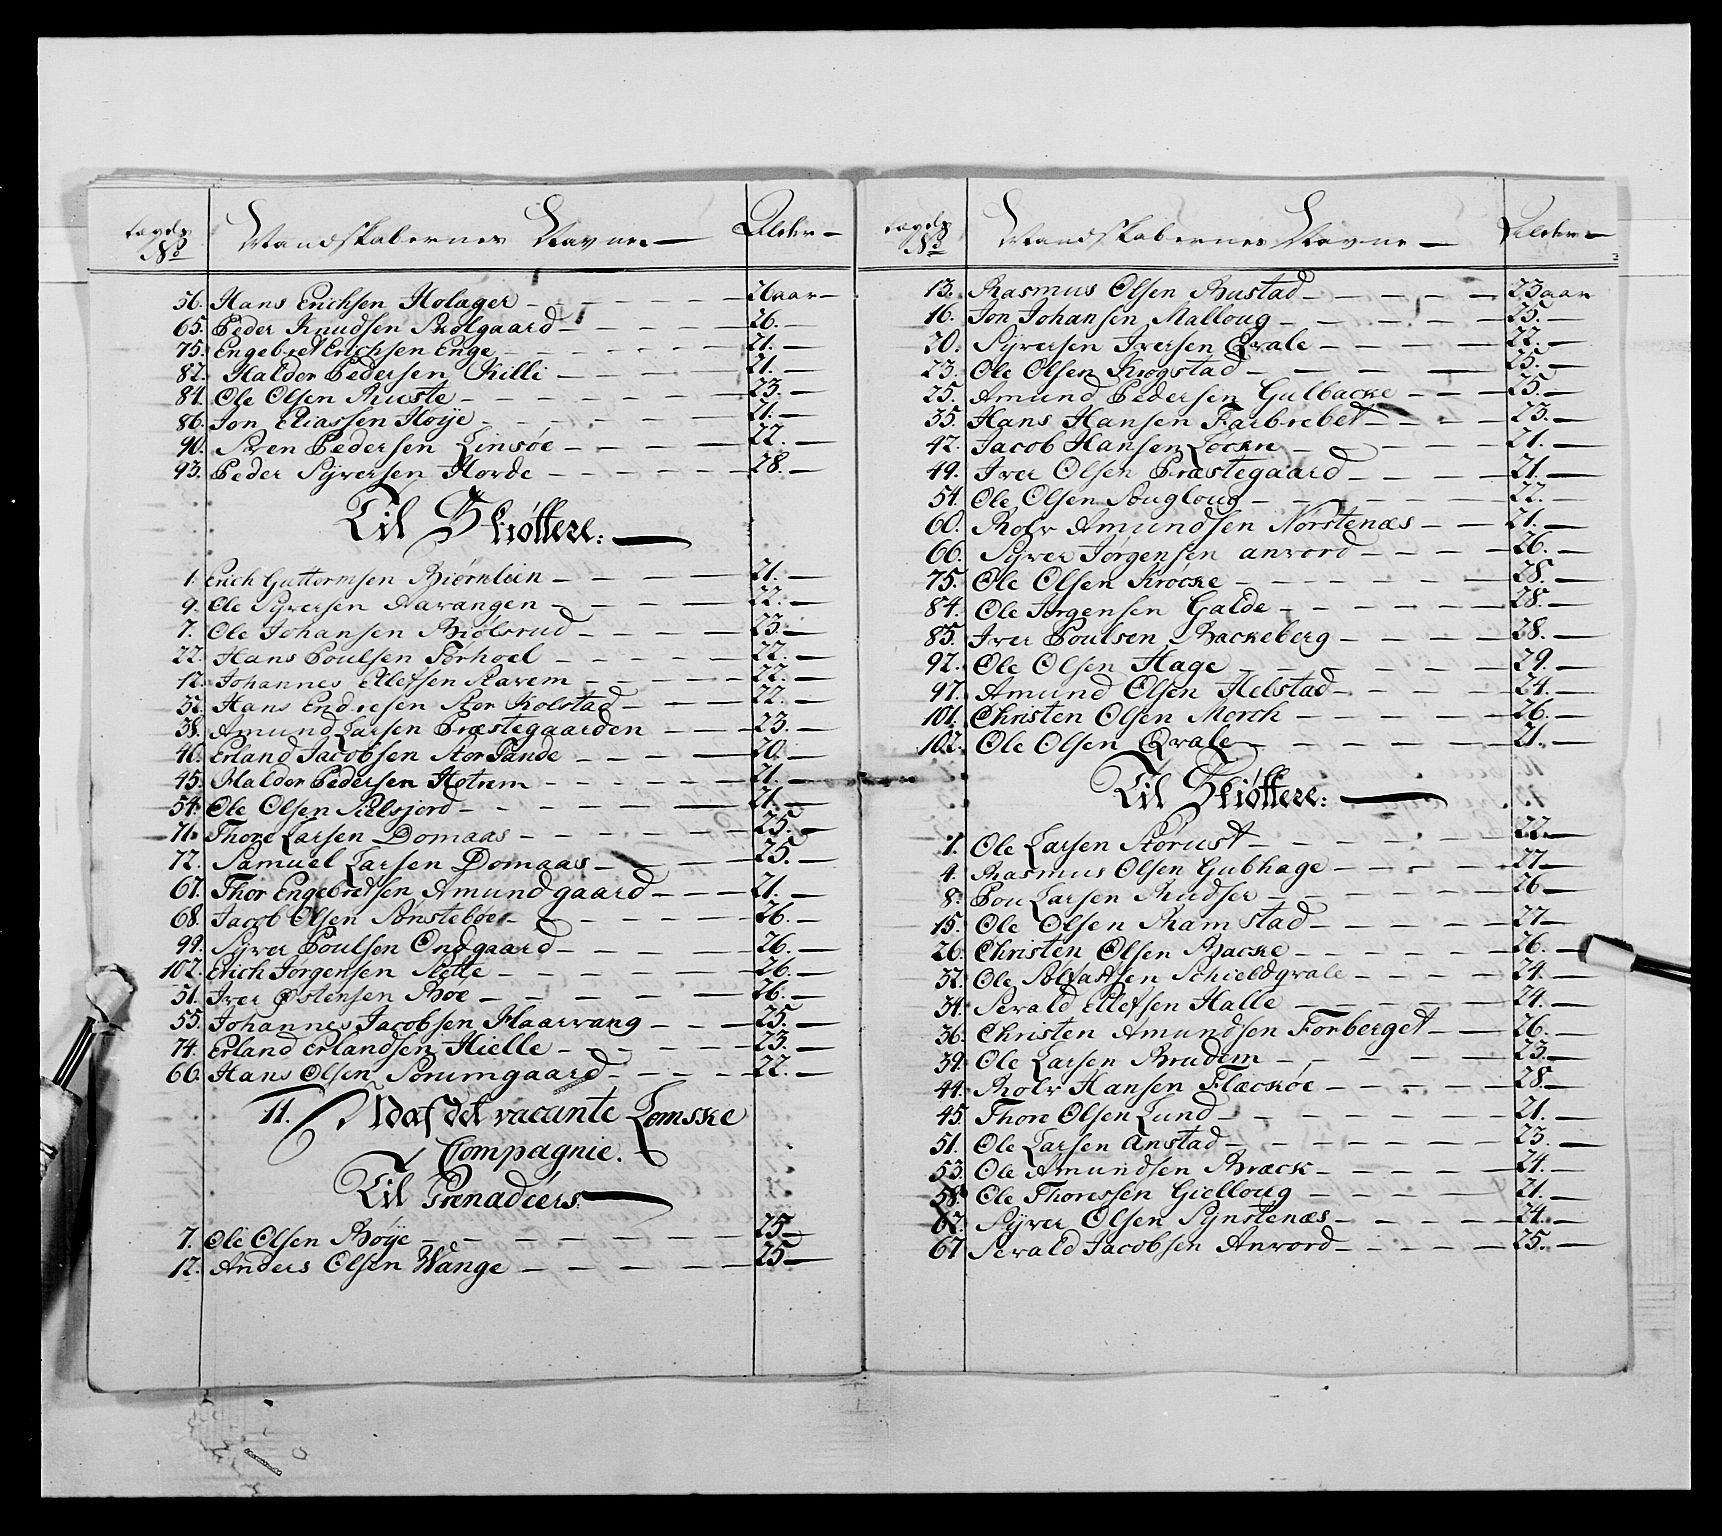 Lægds No Mandskabernes Navne Alder
56. Hans Erichsen Holager 26 aar
65. Peder Knudsen Skolgaard 26.
75. Engebret Erichsen Enge 21.
82. Haldor Pedersen Killi 21.
84. Ole Olsen Ruste 23.
86. Jon Eliassen Høÿe 21.
90. Sven Pedersen Linsøe 22.
93. Peder Sÿversen Horde 28.
Til Skiøttere:
1. Erich Guttormsen Biørnlien 21.
9. Ole Sÿversen Aavangen 22.
7. Ole Johansen Biølsrud 23.
22. Hans Poulsen Tørhoel 22.
12. Johannes Ellefsen Aavem 22.
32. Hans Endresen Stor Kolstad 22.
38. Amund Larsen Præstegaarden 23.
40. Erland Jacobsen Stor Sande 20.
45. Haldor Pedersen Hotrem 21.
54. Ole Olsen Selsjord 21.
71. Thore Larsen Domaas 25.
72. Samuel Larsen Domaas 25.
67. Thor Engebretsen Amundgaard 21.
68. Jacob Olsen Sønsteboer 26.
99. Sÿver Poulsen Ondgaard 26.
102. Erich Jørgensen Slette 26.
51. Iver Østensen Boe 26.
55. Johannes Jacobsen Haarvang 25.
74. Erland Erlandsen Hielle 23.
66. Hans Olsen Sorumgaard 22.
11. Udaf det vacante Lomske
Compagnie.
Til Grenadeers
7. Ole Olsen Bøÿe 25
12. Anders Olsen Vange 25
Lægds No Mandskabernes Navne Alder
13. Rasmus Olsen Bustad 23 aar
16. Jon Johansen Malloug 25.
20. Sÿversen Iversen Qvale 22.
23. Ole Olsen Krogstad 25.
25. Amund Pedersen Gulbacke 25.
35. Hans Hansen Farbrebet 23.
42. Jacob Hansen Løckre 21.
49. Iver Olsen Præstegaard 21.
54. Ole Olsen Sougloug 22.
60. Rolv Amundsen Norstenæs 21.
66. Sÿver Jørgensen Anvord 26.
75. Ole Olsen Krocke 28.
84. Ole Jørgensen Galde 28.
85. Iver Poulsen Backeberg 28.
92. Ole Olsen Hage 29.
97. Amund Olsen Helstad 24.
101. Christen Olsen Morck 26.
102. Ole Olsen Qvale 21.
Til Skiøttere:
1. Ole Larsen Størust 22.
4. Rasmus Olsen Gubhage 27
8. Pou Larsen Rudser 26
15. Ole Olsen Ramstad 27
26. Christen Olsen Backe 26.
32. Ole Solfastsen Schieldqvale 24.
34. Sevald Ellefsen Halle 24.
36. Christen Amundsen Forberget 26.
39. Ole Larsen Brudem 23.
44. Rolv Hansen Flackøe 28
45. Thore Olsen Lund 21.
51. Ole Larsen Anstad 23.
53. Ole Amundsen Bræck 24.
58. Ole Thoressen Gielloug 21.
67. Sÿver Olsen Sÿnstenæs 24.
67 Sevald Jacobsen Anvord 25.